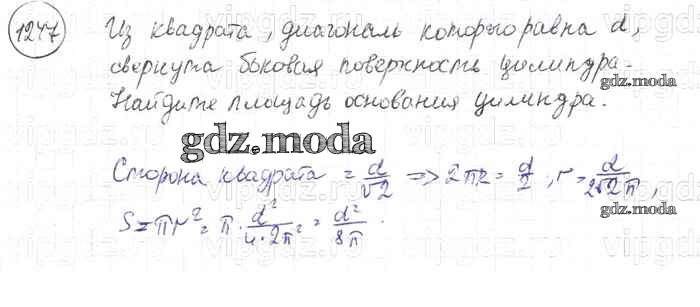 1247 Из квадрата, диагональ которого равна d,
свернута боковая поверхность цилиндра.
Найдите площадь основания цилиндра.
gdz.moda
gdz.moda
Сторона квадрата = d/√2 => 2πr = d/2, r = d/2√2π,
S = πr² = π · d²/4·2π² = d²/8π.
gdz.moda